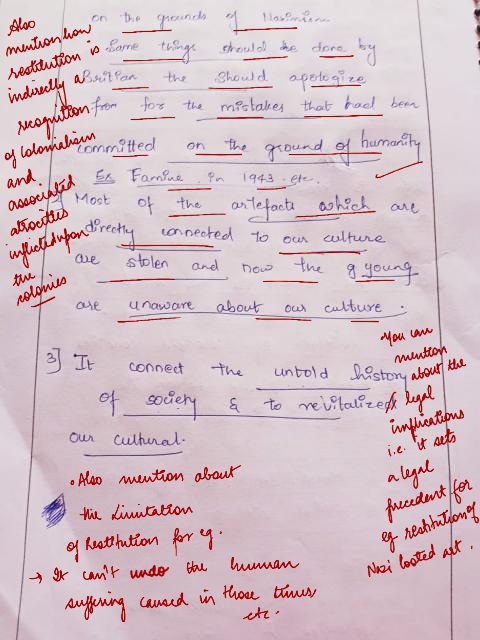 on the grounds of Nasimism
same things should be done by
Britian the should apologize
from for the mistakes that had been
committed on the ground of humanity
Ex Famine in 1943 etc.
2] Most of the artefacts which are
directly connected to our culture
are stolen and now the g young
are unaware about our culture.
3] It connect the untold history
of society & to revitalize
our cultural.
Also
mention how
restitution is
indirectly a
recognition
of colonialism
and
associated
atrocities
inflicted upon
the
colonies
You can
mention
about the
legal
implications
i.e. it sets
a legal
precedent for
eg restitution of
Nazi looted art.
• Also mention about
the Limitation
of Restitution for eg.
→ It can't undo the human
suffering caused in those times
etc.